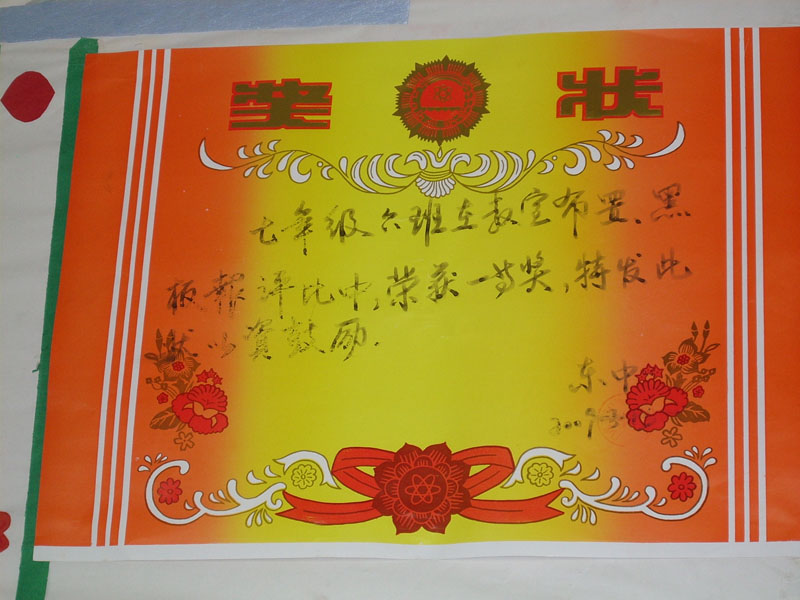 奖状
七年级六班在教室布置、黑
板報评比中,荣获一等奖,特发此
状以资鼓励.
东中
2009